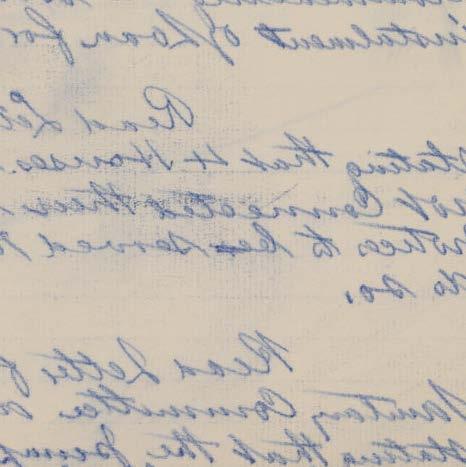 instalment of Loan for
Read Let
stating that 4 Houses
not Connected
notices to be served
to do.
Read Letter f
Sanitary Committee
stating that the pump